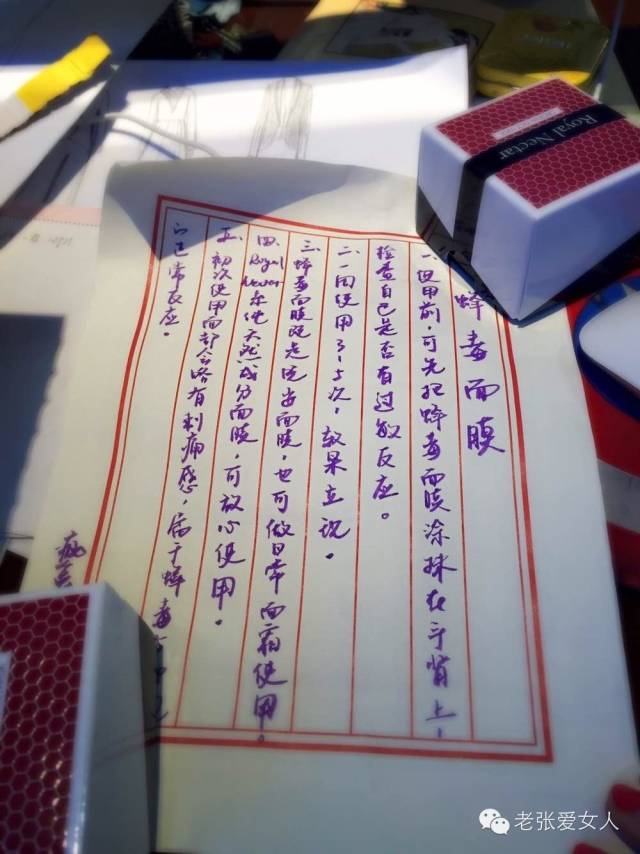 蜂毒面膜
一、使用前,可先把蜂毒面膜涂抹在手背上,
检查自己是否有过敏反应。
二、一周使用3-5次,效果立现。
三、蜂毒面膜既是面膜,也可做日常面霜使用。
四、Royal Nectar纯天然成分面膜,可放心使用。
五、初次使用面部会略有刺痛感,属于蜂毒
的正常反应。
Royal Nectar
老张爱女人